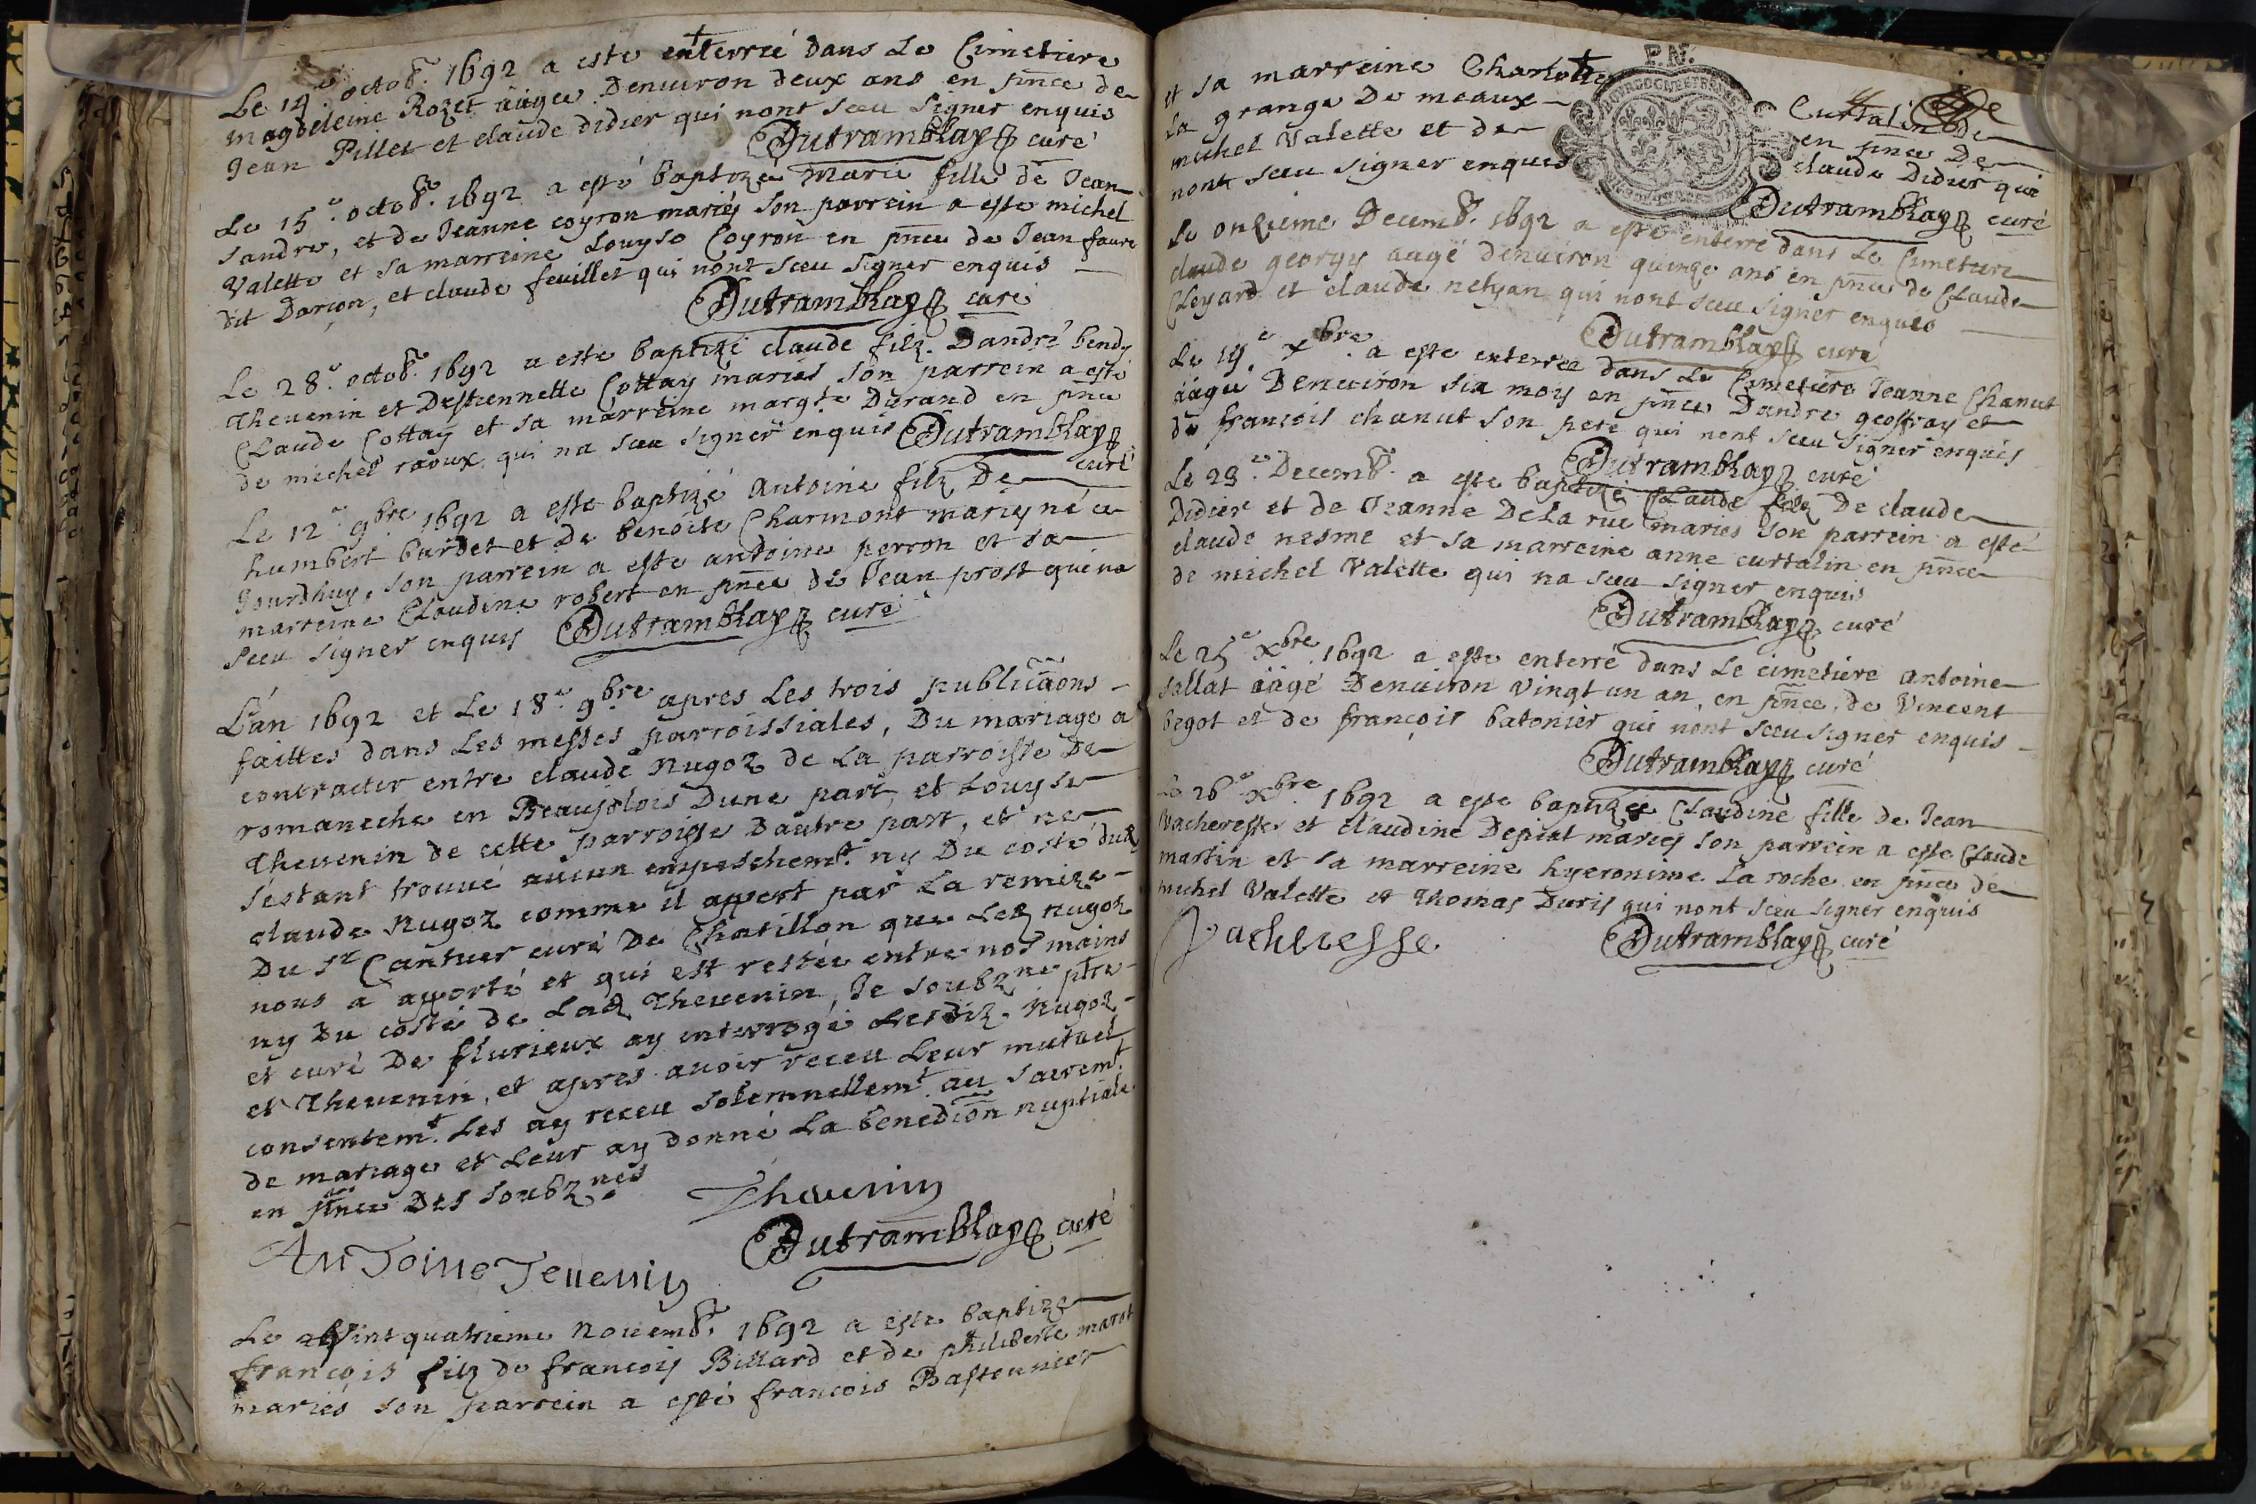 Le 14e. octob. 1692 a este enterrée dans Le Cimetiere
magdeleine Rozet aagee Denviron deux ans en pñce de
Jean Pillet et claude didier qui nont sceu signer enquis
Dutramblay curé
Le 15e. octob. 1692 a esté baptizée Marie fille de Jean
Sandre, et de Jeanne coyron mariés son parrein a este michel
Valette et sa marreine Louyse Coyron en pñce de Jean faure
dit Darcon, et claude feuillet qui nont sceu signer enquis
Dutramblay curé
Le 28e. octob. 1692 a este baptizé claude filz Dandré bendy
Thevenin et Destiennette Cottay mariés son parrein a esté
CLaude Cottay et sa marreine margte Durand en pñce
de michel raoux qui na sceu signer enquis Dutramblay
curé
Le 12e 9bre 1692 a este baptizé Antoine filz De
humbert bardet et De benoite Charmont mariés né ce
Jourdhuy, son parrein a este antoine perron et sa
marreine Claudine robert en pñce de Jean prost qui na
sceu signer enquis Dutramblay curé
L'an 1692 et Le 18e 9bre apres Les trois publicaõns
faittes dans Les messes parroissiales, Du mariage a
contracter entre claude Nugoz de La parroisse De
romaneche en Beaujolois Dune part, et Louyse
Thevenin de cette parroisse Dautre part, et ne
s'estant trouvé aucun empeschemt. ny Du costé dud
claude Nugoz comme il appert par La remize
Du Sr Cantuer curé De Chatillon que Led Nugoz
nous a apporté et qui est restée entre nos mains
ny Du costé de Lad Thevenin, Je soubzne ptre
et curé De flurieux ay interrogé Lesdiz. Nugoz
et Thevenin, et apres avoir receu Leur mutuel
consentemt. Les ay receu solemnellemt au sacremt.
de mariage et Leur ay donné La benediõn nuptiale
en pñce Des soubznes
Thevenin
Dutramblay curé
AnToine Tevenin
Le vint quatrieme novemb. 1692 a este baptizé
francois filz de francois Billard et de philiberte marot
mariés son parrein a esté francois Bastonnier
et sa marreine Charlotte Curtalin de
La grange De meaux en pñce De
michel Valette et de claude Didier qui
nont sceu signer enquis
Dutramblay curé
Le onzieme Decemb. 1692 a este enterré dans Le Cimetiere
claude georges aagé denviron quinze ans en pñce de CLaude
Cleyard et claude netyan qui nont sceu signer enquis
Dutramblay curé
Le 19e xbre a este enterrée dans Le Cimetiere Jeanne Chanut
aagée Denviron six moys en pñce Dandre geoffray et
de francois chanut son pere qui nont sceu signer enquis
Dutramblay curé
Le 23e Decemb. a este baptizé CLaude filz De claude
Didier et de Jeanne De La rue mariés son parrein a esté
claude nesme et sa marreine anne curtalin en pñce
de michel Valette qui na sceu signer enquis
Dutramblay curé
Le 25e xbre 1692 a este enterré dans Le cimetiere antoine
sallat aagé Denviron vingt un an, en pñce, de Vincent
begot et de françois batonier qui nont sceu signer enquis
Dutramblay curé
Le 26e xbre 1692 a este baptizée CLaudine fille de Jean
Vacheresse et claudine Depiat mariés son parrein a este CLaude
martin et sa marreine hyeronime La roche en pñce de
michel Valette et Thomas Duris qui nont sceu signer enquis
Vacheresse Dutramblay curé